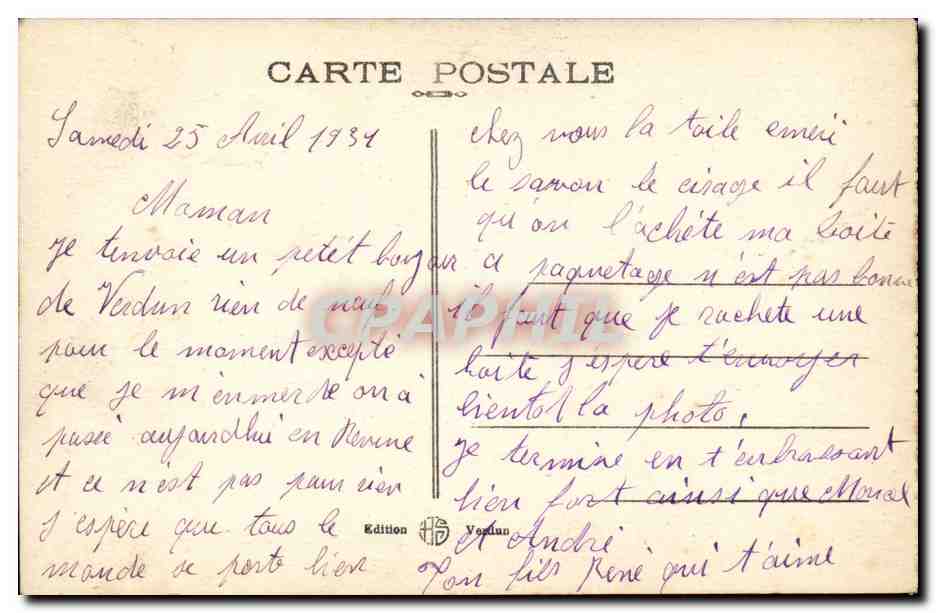 CARTE POSTALE
Samedi 25 Avril 1931
Maman
Je t'envoie un petét bonjour
de Verdun rien de neuf
pour le moment excepté
que je m'enmerde on à
passé aujourdhui en Revue
et ce n'est pas pour rien
j'espère que tous le
monde se porte bien
chez vous la toile emeri
le savon le cirage il faut
qu'on l'achéte ma boite
a paquetage n'est pas bonne
il faut que je rachete une
boite j'éspere t'envoyer
bientot la photo.
Je termine en t'enbrassant
bien fort ainsi que
et André
Ton fils René qui t'aime
Edition HS Verdun
CPAPHIL